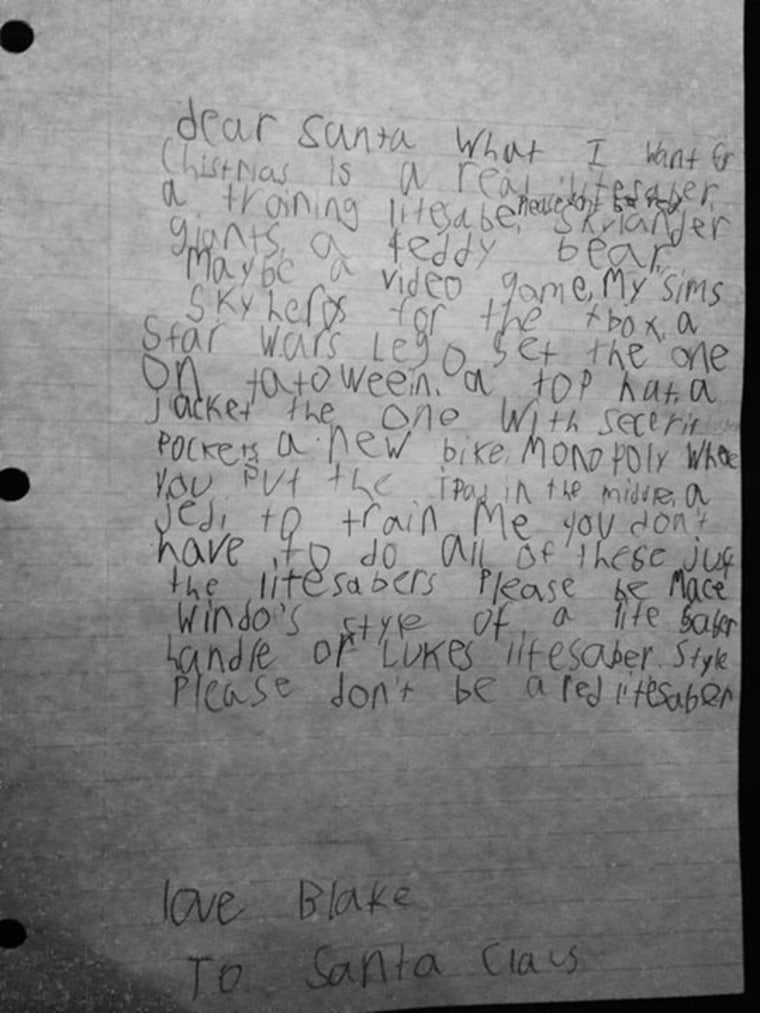 dear Santa What I Want for
Christmas is a real litesaber,
a training litesaber, Please don't be red, Skylander
giants, a teddy bear,
Maybe a video game, My sims
Sky heros for the xbox, a
Star wars Lego set the one
On tatoween. a top hat, a
Jacket the one With secerit
Pockets, a new bike, Monopoly Where
you Put the ipad in the middle, a
Jedi to train Me you don't
have to do all of these jus
the litesabers Please be Mace
Windo's style of a lite Saber
handle or Lukes litesaber Style
Please don't be a red litesaber
love Blake
To Santa Claus